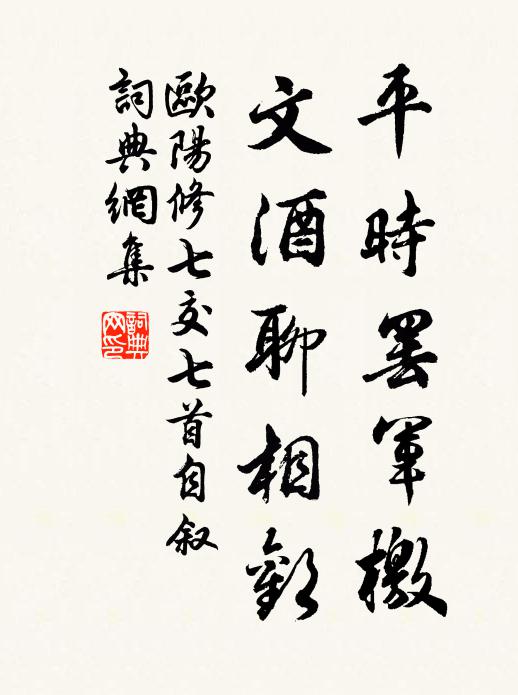 平時罢軍檄
文酒聊相歡
歐陽修七交七首自叙
詞典網集
詞典网印